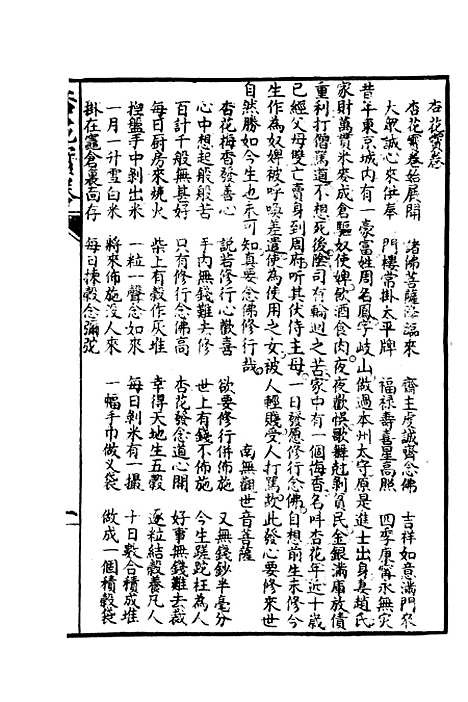 杏花寶卷
杏花寶卷始展開　諸佛菩薩降臨來　齋主虔誠齋念佛　吉祥如意滿門眾
大眾誠心來供奉　門樓常掛太平牌　福祿壽喜星高照　四季康寧永無災
昔年東京城內有一豪富姓周名鳳字岐山做過本州太守原是進士出身妻趙氏
家財萬貫米麥成倉驅奴使婢飲酒食肉夜夜歡悞歌舞剋剝貧民金銀滿庫放債
重利打僧罵道不想死後陰司有輪迴之苦家中有一個海香名呌杏花年近十歲
已經父母雙亡賣身到周府听其伏侍主母一日發愿修行念佛自想前生未修今
生作為奴婢被呼喚差遣使為使用之女被人輕賤受人打罵欺此發心要修來世
自然勝如今生也未可知真要念佛修行哉　南無觀世音菩薩
杏花梅香發善心　說若修行心歡喜　欲要修行併佈施　又無錢鈔半毫分
心中想起般般苦　手內無錢難去修　世上有錢不佈施　今生蹉跎枉為人
百計千般無其好　只有修行念佛高　杏花發念道心開　好事無錢難去
每日厨房來燒火　柴上有穀作灰堆　幸得天地生五穀　逐粒結穀養凡人
捏盤手中剝出米　一粒一聲念如來　每日剝米有一撮　十日數合積成堆
一月一升雪白米　將來佈施沒人來　一幅手巾做叉袋　做成一個積穀袋
掛在竈倉裏面存　每日揀穀念彌陀